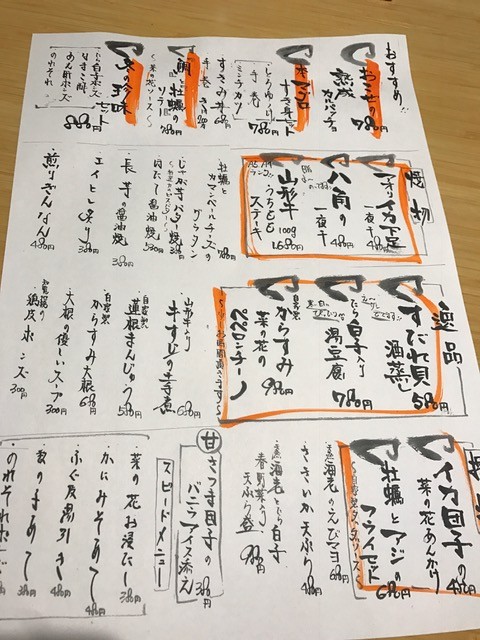 おすすめ!!
おこぜの
熟成
カルパッチョ
780円
本マグロ
すき身セット
780円
ミンチカツ
すきみ丼 680円
手巻き 280円
鯛と牡蠣の
ソテー
〜菜の花ソース〜
780円
冬の珍味
セット
880円
たら白子ポンズ
あん肝ポンズ
のれそれ
焼物
アオリイカ下足
一夜干
480円
八角の
一夜干
480円
山形牛
うちもも
ステーキ
100g
1680円
牡蠣と
カマンベールチーズの
グラタン
780円
じゃが芋バター焼
380円
長芋の醤油焼
380円
エイヒレ炙り
380円
煎りぎんなん
480円
逸品
すだれ貝
酒蒸し
580円
たら白子入り
湯豆腐
780円
自家製
からすみ
菜の花の
ペペロンチーノ
980円
山形牛の
牛すじの土手煮
680円
自家製
蓮根まんじゅう
580円
自家製
からすみ大根
680円
大根の優しいスープ
300円
鶏皮ポンズ
300円
イカ団子の
菜の花あんかけ
480円
牡蠣とアジの
フライセット
680円
〜自家製タルタルソース〜
海老のえびマヨ
680円
さきいか天ぷら
480円
海老とたら白子
春野菜入り
天ぷら盛
980円
甘
さつま団子の
バニラアイス添え
380円
スピードメニュー
菜の花お浸し
380円
かにみそあて
480円
ふぐ皮湯引き
480円